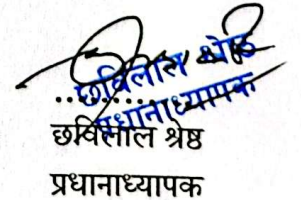 छविलाल श्रेष्ठ
प्रधानाध्यापक
.........
छविलाल श्रेष्ठ
प्रधानाध्यापक